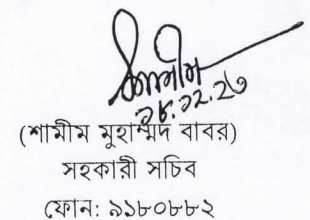 শামীম
১৮.১২.২৩
(শামীম মুহাম্মদ বাবর)
সহকারী সচিব
ফোন: ৯১৮০৮৮২